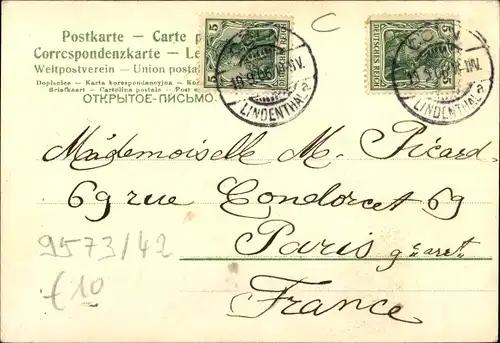 Postkarte — Carte p
Correspondenzkarte — Le
Weltpostverein — Union posta
Dopisnice — Karta korespondencyjna — Ko
Briefkaart — Cartolina postale — Post
ОТКРЫТОЕ-ПИСЬМО.
5
DEUTSCHES REICH
5
LINDENTHAL
LINDENTHAL
Mademoiselle M. Picard.
69 rue Condorcet 69
Paris
France
9573/42
€10